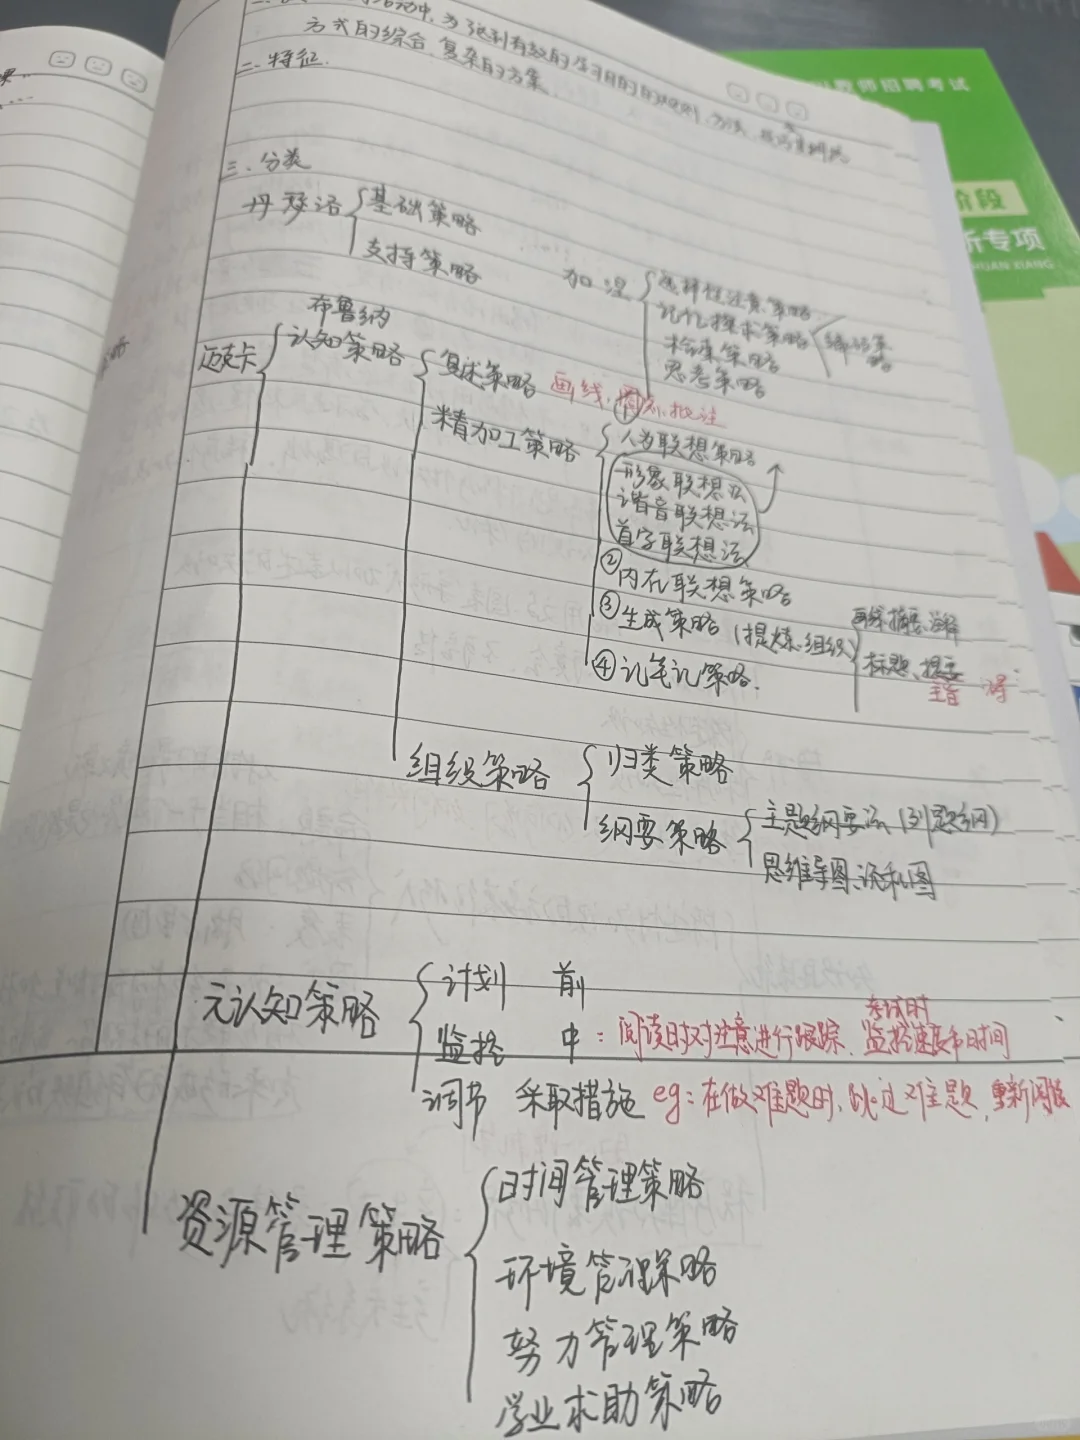 为达到有效的学习目的
方式的综合,复杂的方案.
二.特征.
三.分类
丹瑟洛
基础策略
支持策略
加涅
选择性注意策略
记忆探求策略
编码策略
检索策略
思考策略
迈克卡
布鲁纳
认知策略
复述策略 画线,圈点批注
精加工策略
① 人为联想策略
形象联想法
谐音联想法
首字联想法
②内在联想策略
③生成策略(提炼.组织)
画线 摘要.注释
标题、提要
主旨
④记笔记策略.
组织策略
归类策略
纲要策略
主题纲要法(列题纲)
思维导图.流程图
元认知策略
计划 前
考试时
监控 中:阅读时对注意进行跟踪、监控速度和时间
调节 采取措施 eg:在做难题时,跳过难题,重新阅读
资源管理策略
时间管理策略
环境管理策略
努力管理策略
学业求助策略
教师招聘考试
阶段
析专项
SHUAN XIANG